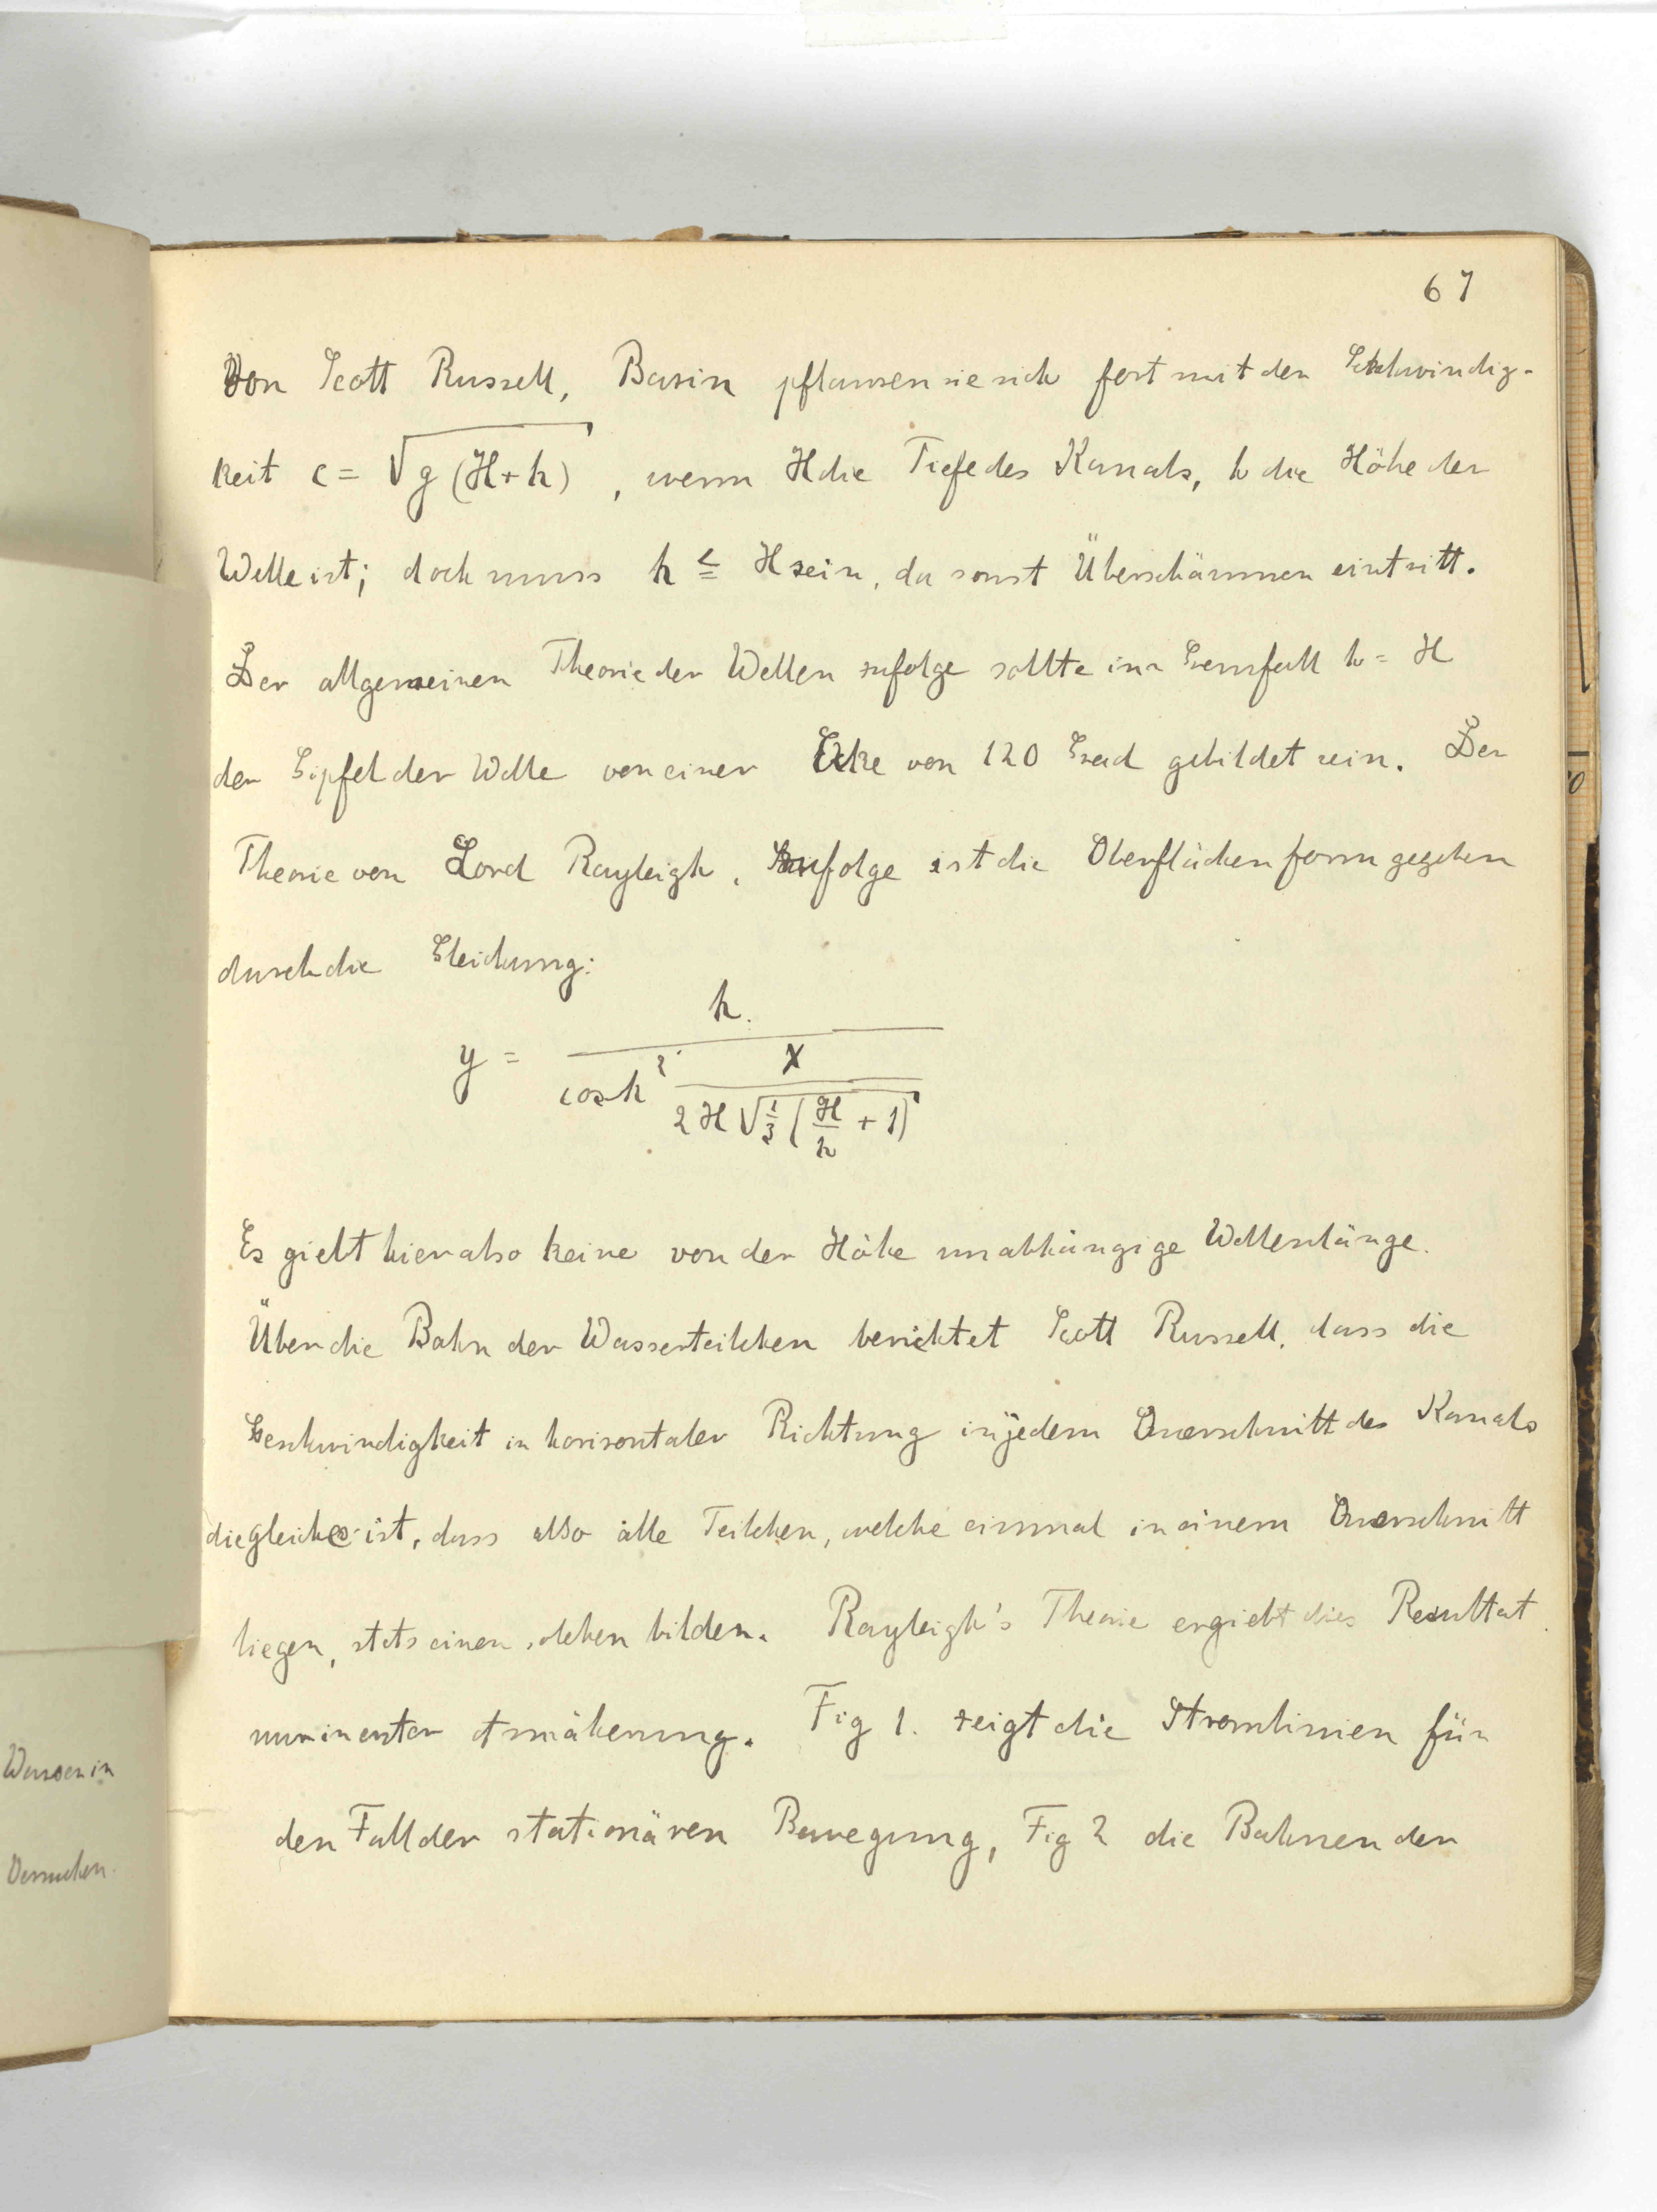 67
Von Scott Russell, Basin pflanzen sie sich fort mit der Geschwindig-
keit c = √g (H + h) , wenn H die Tiefe des Kanals, h die Höhe der
Welle ist; doch muss h ≦ H sein, da sonst Überschäumen eintritt.
Der allgemeinen Theorie der Wellen zufolge sollte im Grenzfall h = H
der Gipfel der Welle von einer Ecke von 120 Grad gebildet sein. Der
Theorie von Lord Rayleigh, zufolge ist die Oberflächenform gegeben
durch die Gleichung:
y = h / cosh² x / 2H √1/3 (H/h + 1)
Es giebt hier also keine von der Höhe unabhängige Wellenlänge.
Über die Bahn der Wasserteilchen berichtet Scott Russell, dass die
Geschwindigkeit in horizontaler Richtung in jedem Querschnitt des Kanals
die gleiche ist, dass also alle Teilchen, welche einmal in einem Querschnitt
liegen, stets einen solchen bilden. Rayleigh's Theorie ergiebt dies Resultat
nur in erster Annäherung. Fig 1. zeigt die Stromlinien für
den Fall der stationären Bewegung, Fig 2 die Bahnen der
Wasser in
Versuchen.